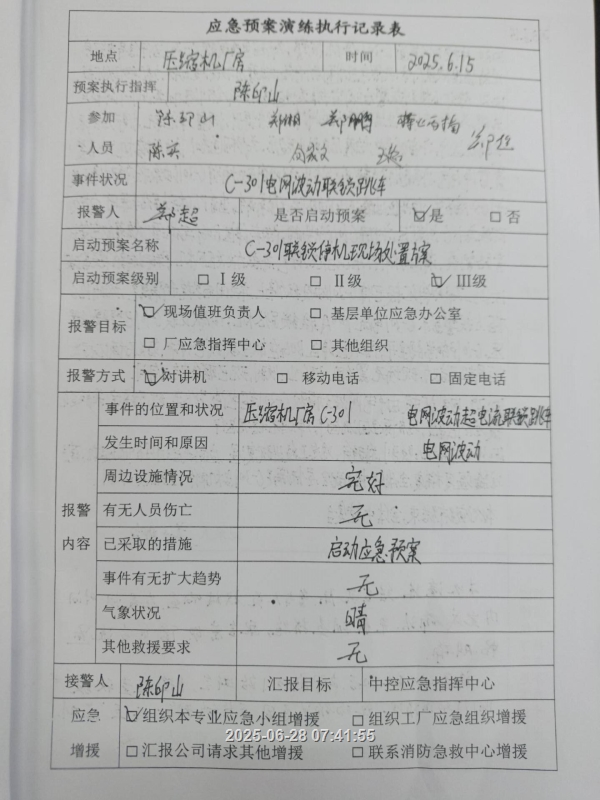 应急预案演练执行记录表
地点 压缩机厂房 时间 2025.6.15
预案执行指挥 陈印山
参加 陈印山 郑鹏
人员 陈英
事件状况 C-301电网波动联锁跳车
报警人 郑超 是否启动预案 ☑是 □否
启动预案名称 C-301联锁停机现场处置方案
启动预案级别 □Ⅰ级 □Ⅱ级 ☑Ⅲ级
报警目标 ☑现场值班负责人 □基层单位应急办公室
□厂应急指挥中心 □其他组织
报警方式 ☑对讲机 □移动电话 □固定电话
报警内容
事件的位置和状况 压缩机厂房C-301 电网波动超电流联锁跳车
发生时间和原因 电网波动
周边设施情况 完好
有无人员伤亡 无
已采取的措施 启动应急预案
事件有无扩大趋势 无
气象状况 晴
其他救援要求 无
接警人 陈印山 汇报目标 中控应急指挥中心
应急 ☑组织本专业应急小组增援 □组织工厂应急组织增援
2025-06-28 07:41:55
增援 □汇报公司请求其他增援 □联系消防急救中心增援